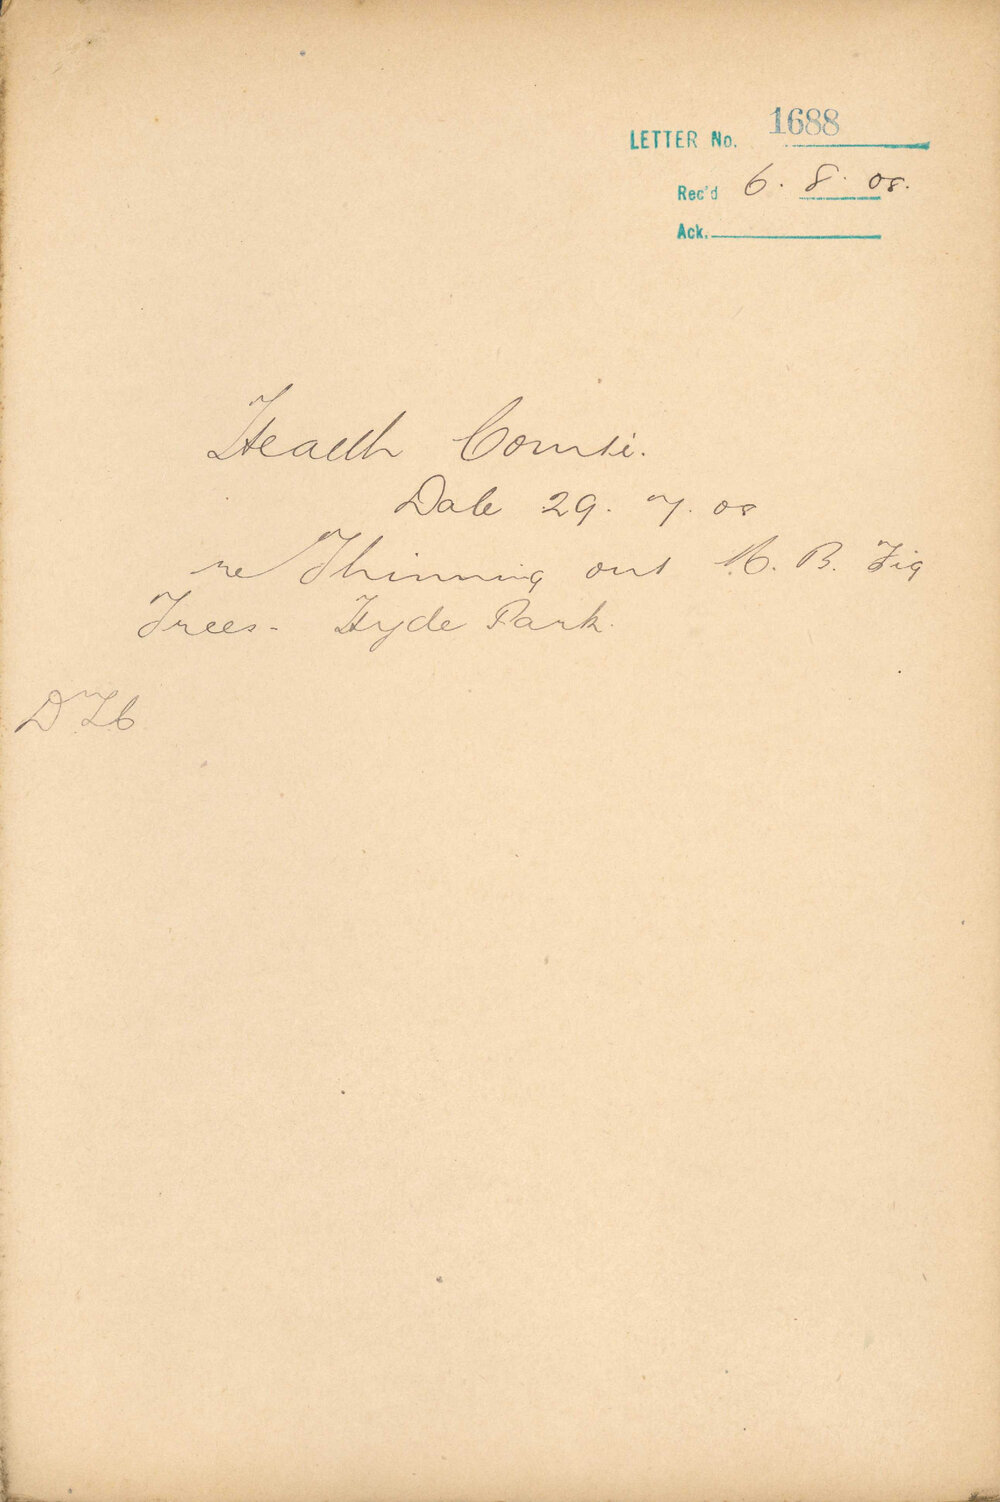 LETTER No. 1688
Rec'd 6. 8. 08.
Ack.
Health Comte.
Date 29. 7. 08
re Thinning out M. B. Fig
Trees - Hyde Park.